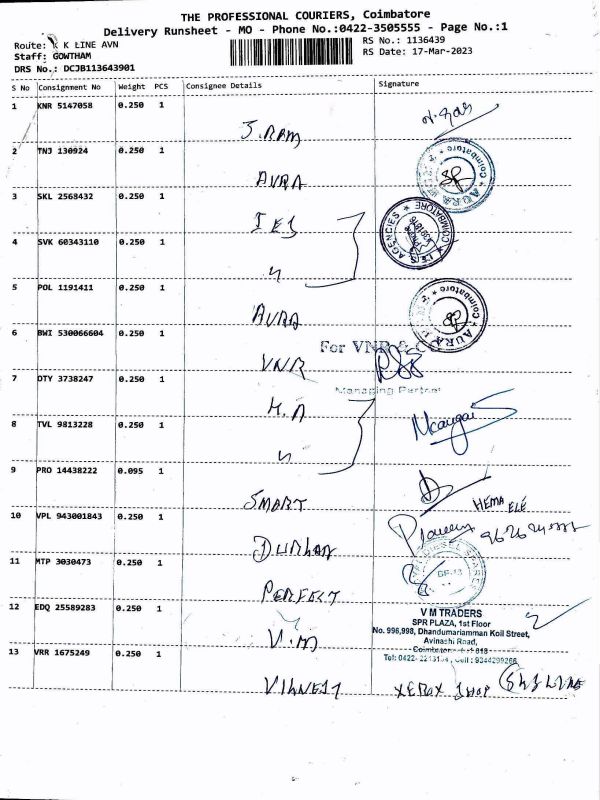 THE PROFESSIONAL COURIERS, Coimbatore
Delivery Runsheet - MO - Phone No.:0422-3505555 - Page No.:1
Route: K K LINE AVN
RS No.: 1136439
Staff: GOWTHAM
RS Date: 17-Mar-2023
DRS No.: DCJB113643901
S No Consignment No Weight PCS Consignee Details Signature
1 KNR 5147058 0.250 1
J.RAM
2 TNJ 130924 0.250 1
AURA
AURA Coimbatore
3 SKL 2568432 0.250 1
IES
IES AGENCIES COIMBATORE
4 SVK 60343110 0.250 1
5 POL 1191411 0.250 1
AURA
AURA Coimbatore
6 BWI 530066604 0.250 1
For VNR & CO
VNR
Managing Partner
7 OTY 3738247 0.250 1
M.A
8 TVL 9813228 0.250 1
9 PRO 14438222 0.095 1
SMART
HEMA
10 VPL 943001843 0.250 1
DURHAM
11 MTP 3030473 0.250 1
DIESEL
PERFECT
12 EDQ 25589283 0.250 1
V.M
V M TRADERS
SPR PLAZA, 1st Floor
No. 996,998, Dhandumariamman Koil Street,
Avinashi Road,
Coimbatore
Tel: 0422- Cell : 9344299266
13 VRR 1675249 0.250 1
XEROX SHOP